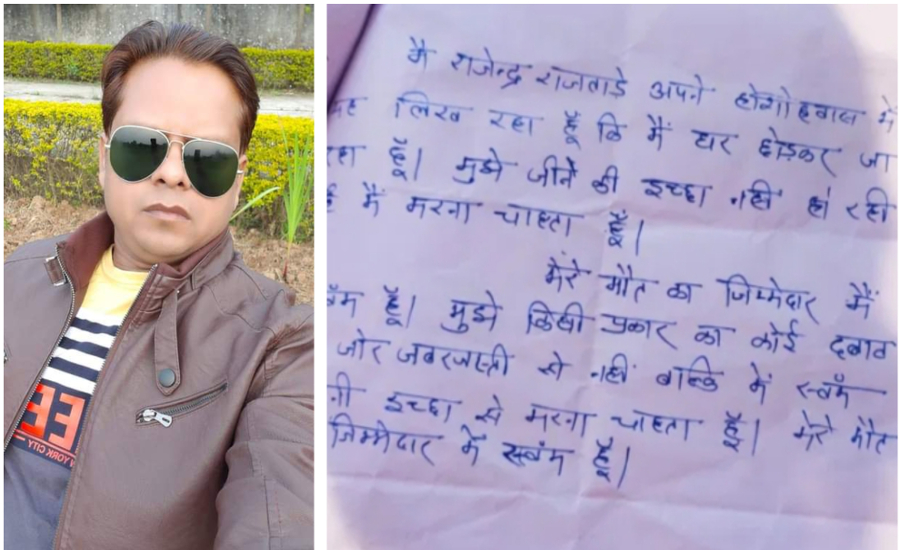 मै राजेन्द्र राजवाड़े अपने होशोहवास में
यह लिख रहा हूँ कि मैं घर छोड़कर जा
रहा हूँ। मुझे जीने की इच्छा नहीं हो रही
है मैं मरना चाहता हूँ।
मेरे मौत का जिम्मेदार मैं
हूँ। मुझे किसी प्रकार का कोई दबाव
जोर जबरजस्ती से नहीं बल्कि में स्वंम
इच्छा से मरना चाहता हूँ। मेरे मौत
जिम्मेदार मैं स्वंम हूँ।
YORK CITY